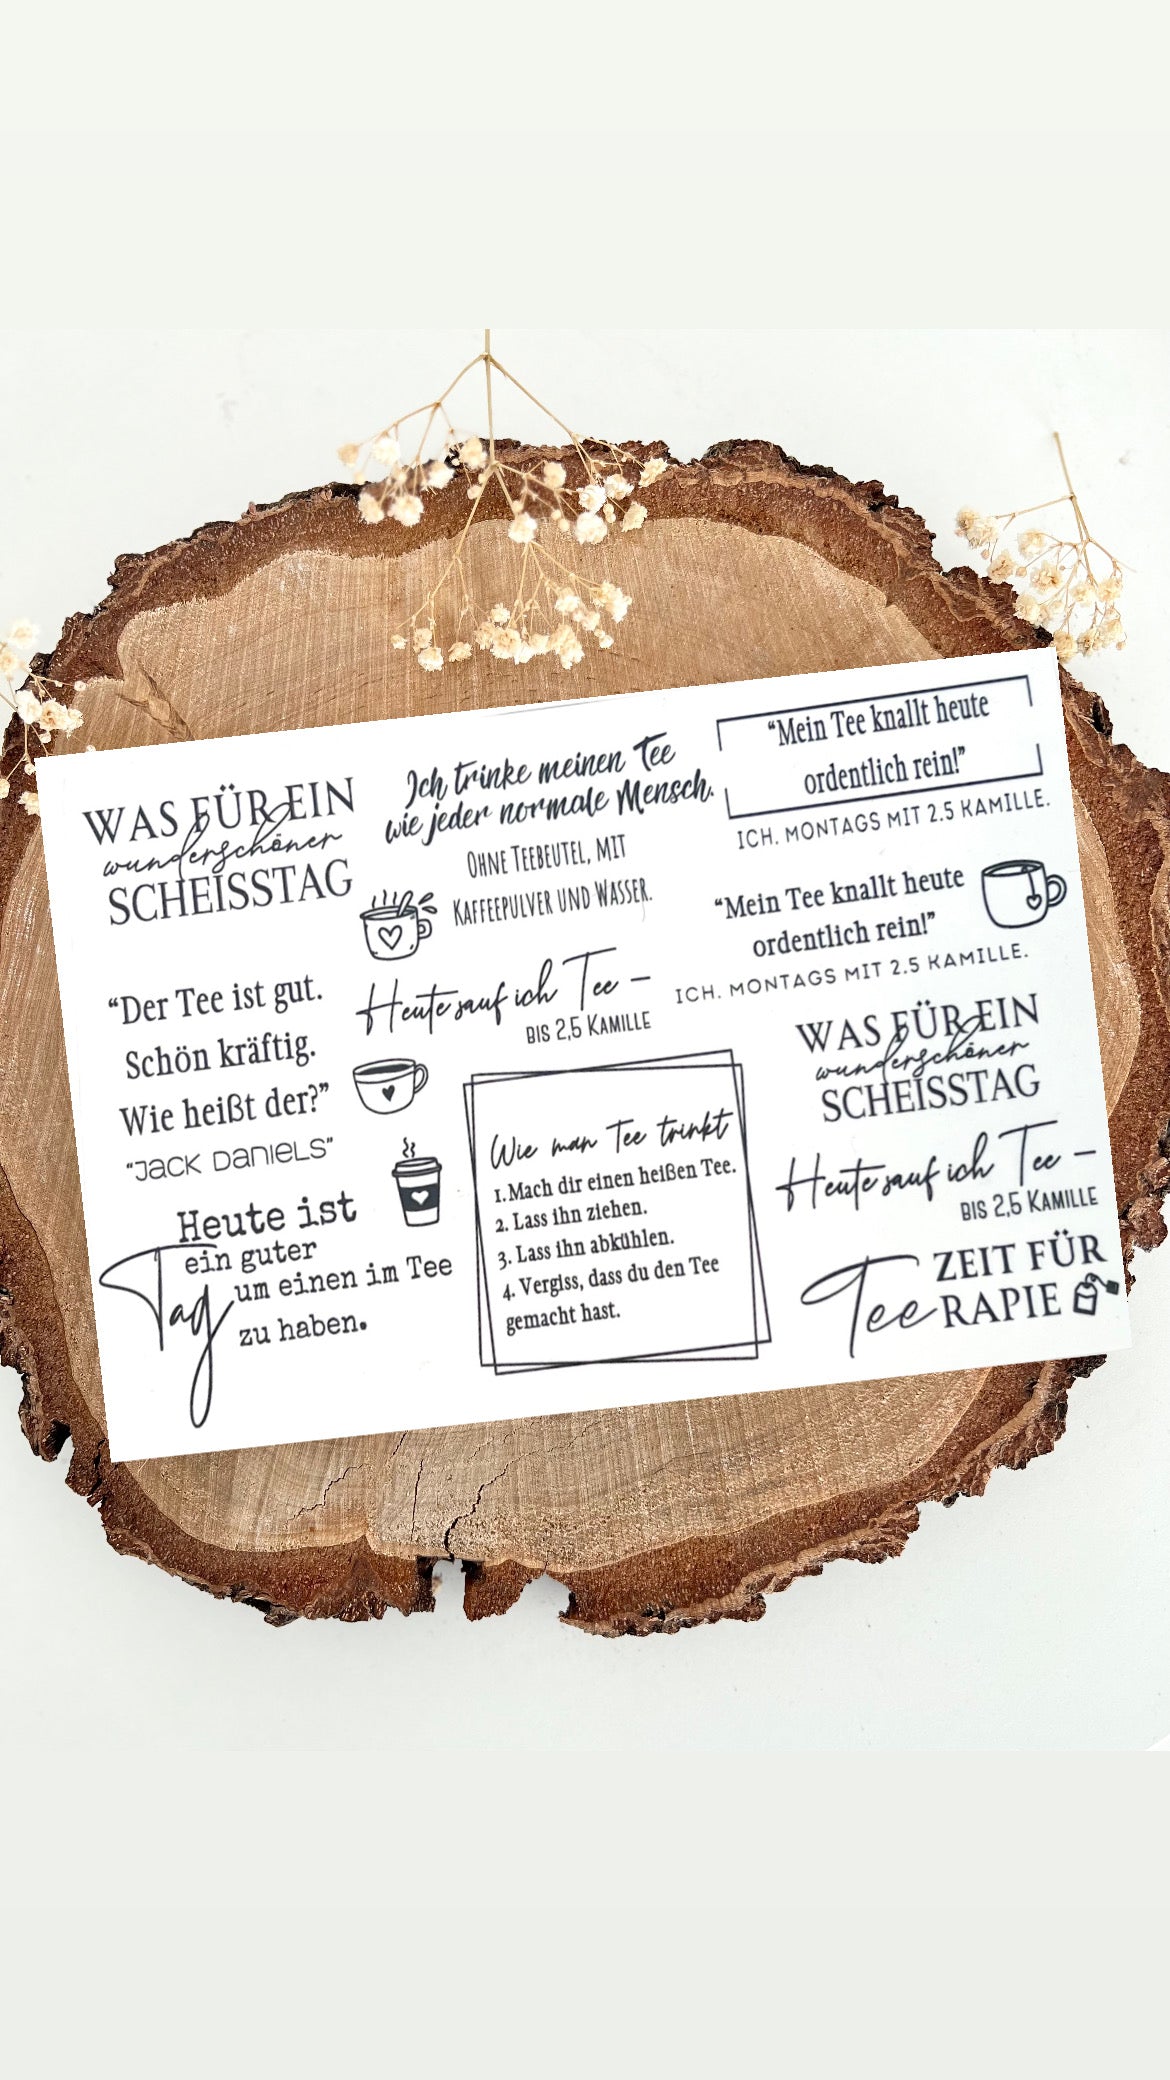 WAS FÜR EIN
wunderschöner
SCHEISSTAG
“Der Tee ist gut.
Schön kräftig.
Wie heißt der?”
“Jack Daniels”
Heute ist
ein guter
Tag
um einen im Tee
zu haben.
Ich trinke meinen Tee
wie jeder normale Mensch.
OHNE TEEBEUTEL, MIT
KAFFEEPULVER UND WASSER.
Heute sauf ich Tee –
BIS 2,5 KAMILLE
Wie man Tee trinkt
1. Mach dir einen heißen Tee.
2. Lass ihn ziehen.
3. Lass ihn abkühlen.
4. Vergiss, dass du den Tee
gemacht hast.
“Mein Tee knallt heute
ordentlich rein!”
ICH. MONTAGS MIT 2.5 KAMILLE.
“Mein Tee knallt heute
ordentlich rein!”
ICH. MONTAGS MIT 2.5 KAMILLE.
WAS FÜR EIN
wunderschöner
SCHEISSTAG
Heute sauf ich Tee –
BIS 2,5 KAMILLE
ZEIT FÜR
Tee RAPIE